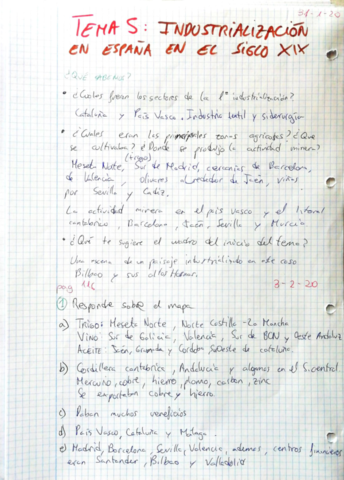 31-1-20
TEMA 5: INDUSTRIALIZACIÓN
EN ESPAÑA EN EL SIGLO XIX
¿QUÉ SABEMOS?
• ¿Cuáles fueron los sectores de la 1ª industrialización?
Cataluña y País Vasco. Industria textil y siderurgia
• ¿Cuáles eran las principales zonas agrícolas? ¿Que
se cultivaba? ¿Donde se produjo la actividad minera?
(trigo)
Meseta Norte, Sur de Madrid, cercanías de Barcelona,
de Valencia, olivares alrededor de Jaén, viñas
por Sevilla y Cadiz.
La actividad minera en el país vasco y el litoral
cantábrico, Barcelona, Jaén, Sevilla y Murcia
• ¿Qué te sugiere el cuadro del inicio del tema?
Una escena de un paisaje industrializado en este caso
Bilbao y sus altos Hornos.
pag 116
3-2-20
① Responde sobre el mapa
a) Trigo: Meseta Norte, Norte Castilla-La Mancha
Vino: Sur de Galicia, Valencia, Sur de BCN y Oeste Andaluz
Aceite: Jaén, Granada y Cordoba SuOeste de cataluña
b) Cordillera cantábrica, Andalucía y algunas en el S.central
Mercurio, cobre, hierro, plomo, carbón, zinc
Se exportaban cobre y hierro
c) Daban muchos beneficios
d) País Vasco, Cataluña y Málaga.
e) Madrid, Barcelona, Sevilla, Valencia, ademas, centros financieros
eran Santander, Bilbao y Valladolid